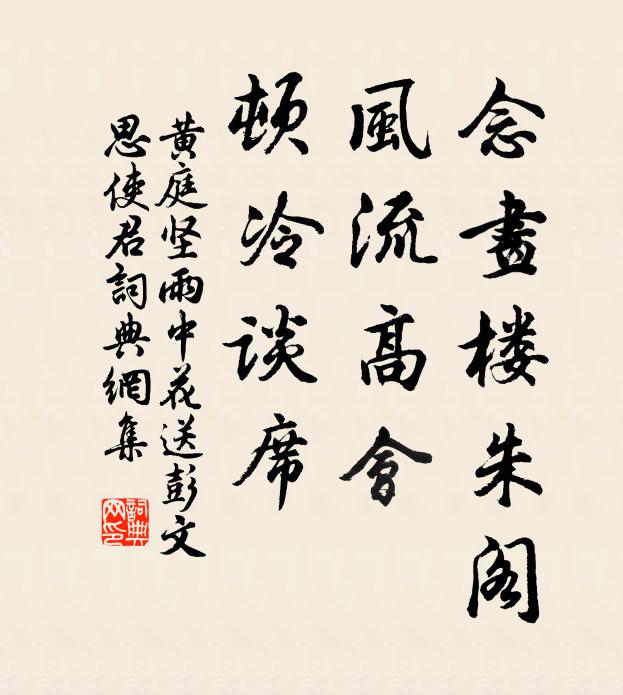 念畫楼朱阁
風流高會
頓冷谈席
黄庭坚雨中花送彭文
思使君詞典網集
詞典网印